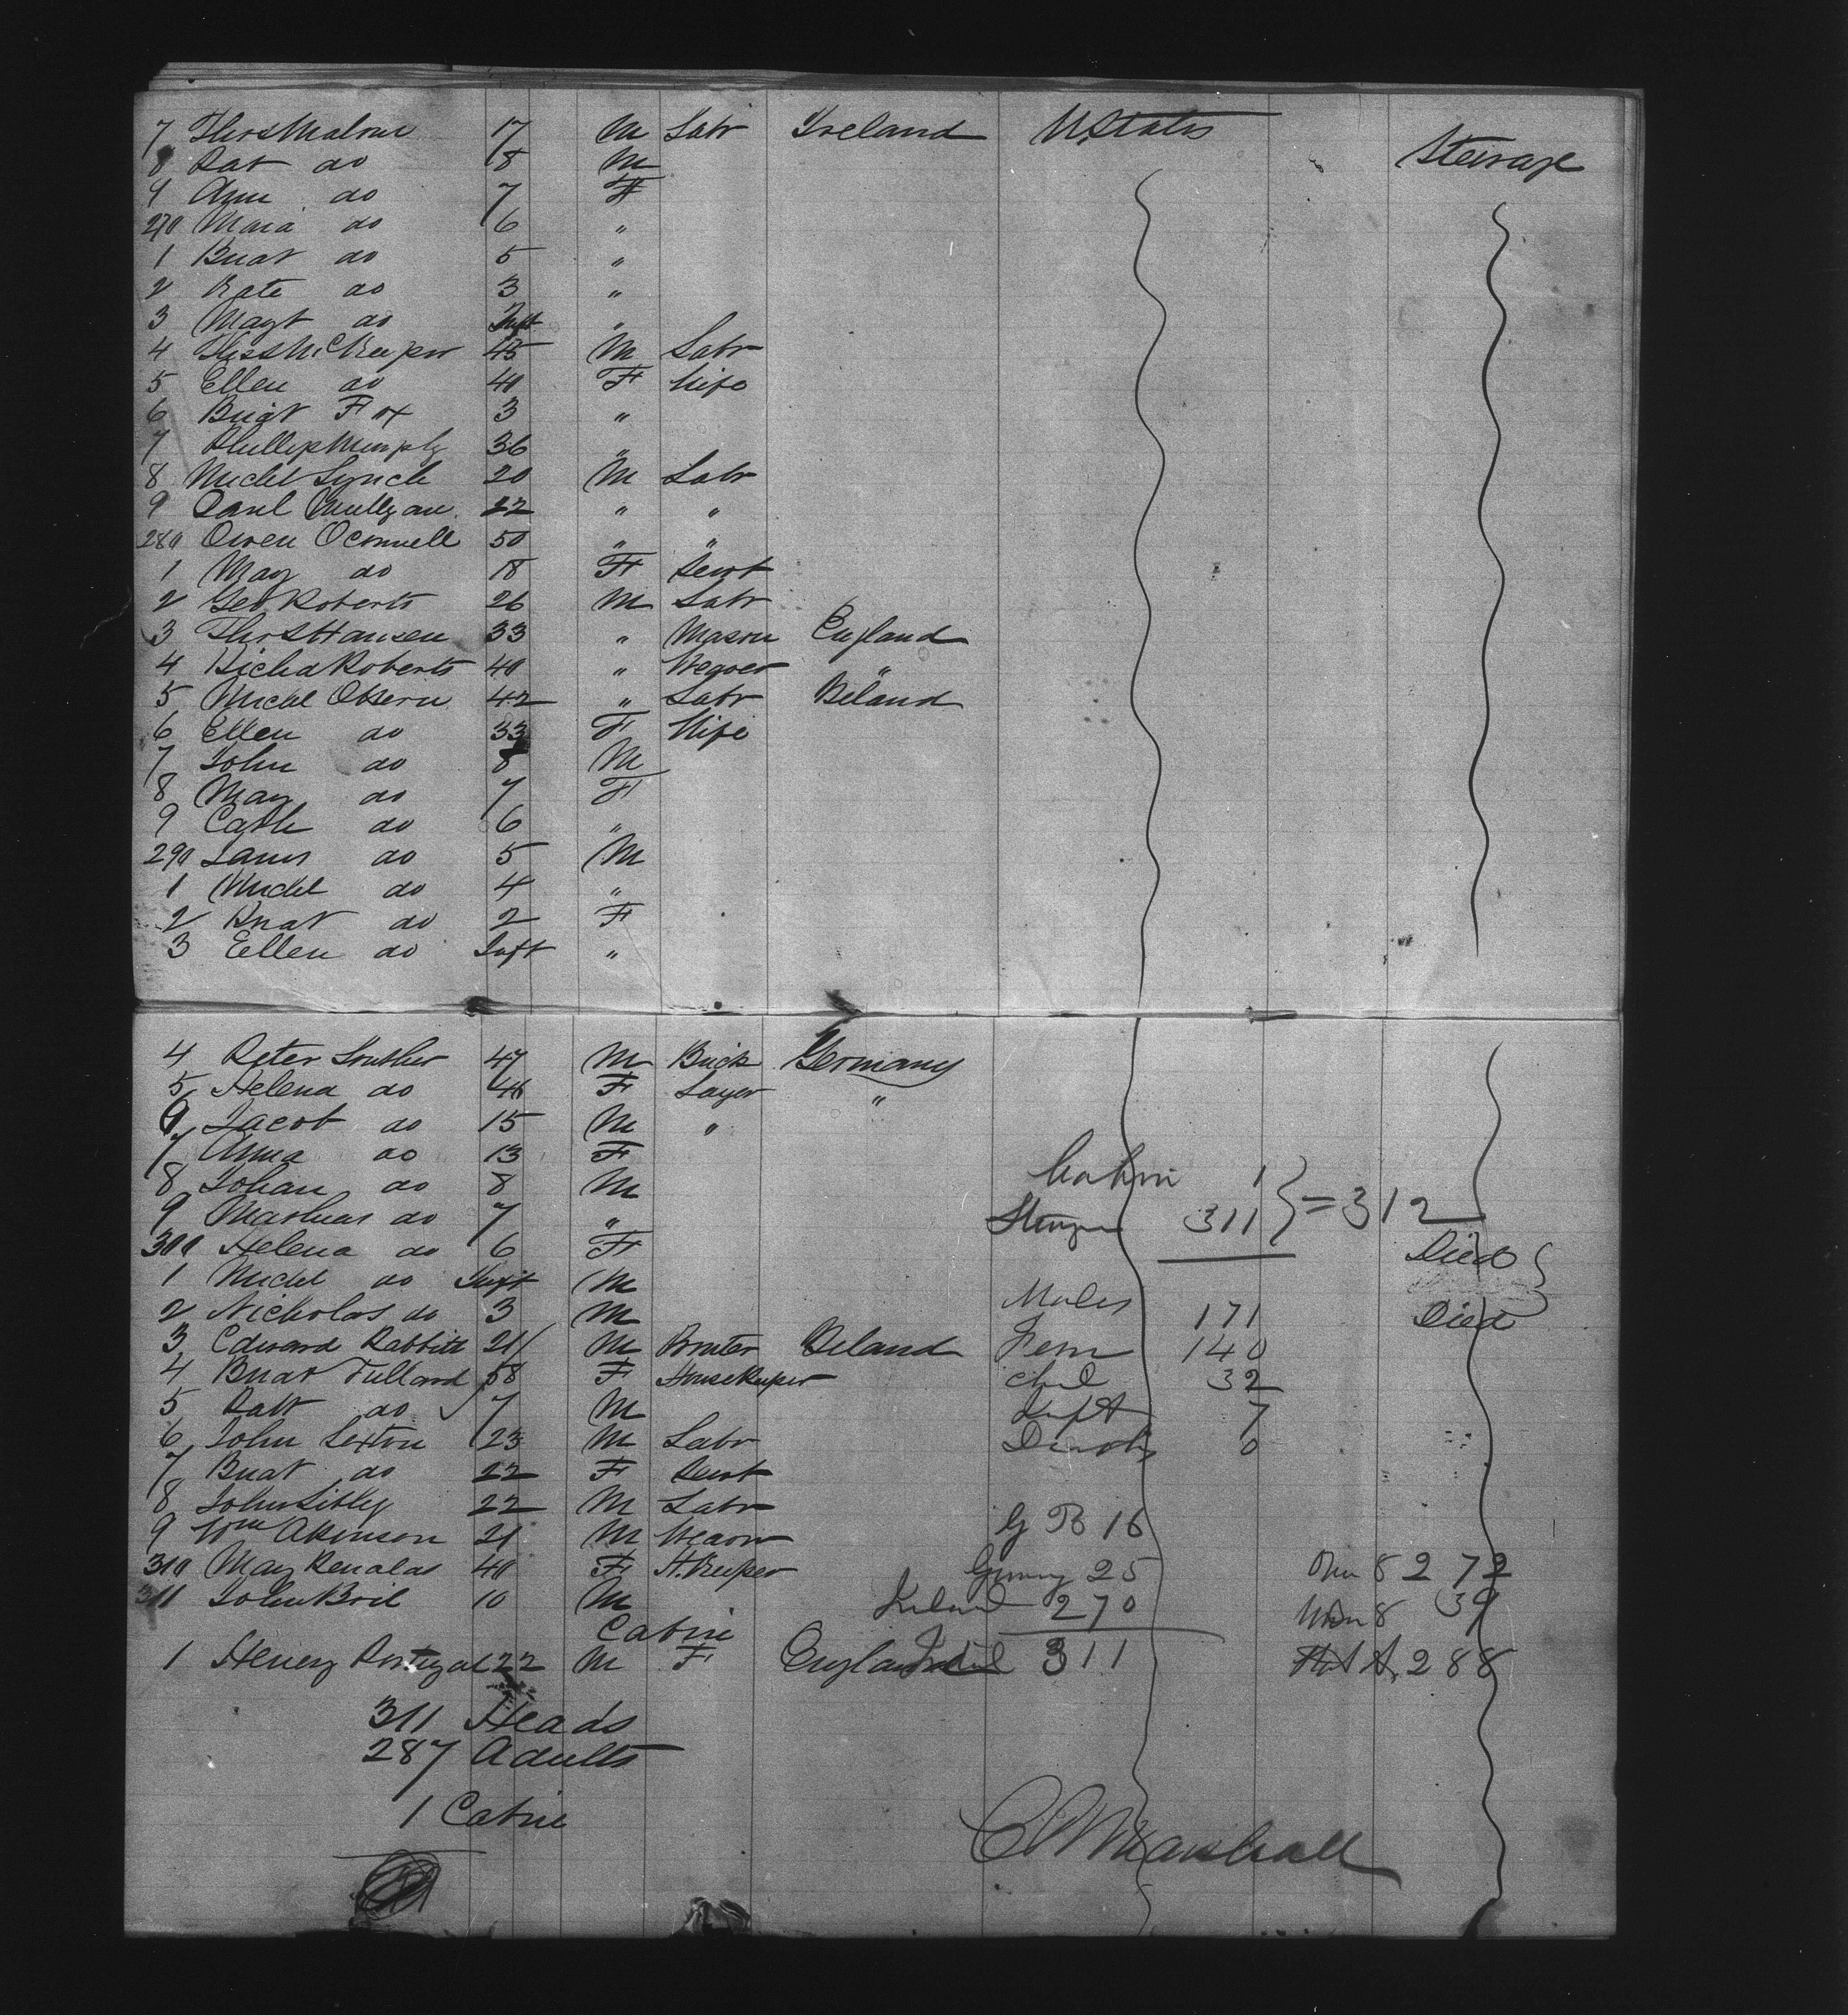 7 Thos Malone 17 M Labr Ireland U States Steerage
8 Pat do 8 M
9 Ann do 7 F
270 Maria do 6 "
1 Bridt do 5 "
2 Kate do 3 "
3 Margt do Inft "
4 Thos McKeeper 45 M Labr
5 Ellen do 40 F Wife
6 Bridt Fox 3 "
7 Phillip Murphy 36 "
8 Michl Lynch 20 M Labr
9 Danl Mulligan 22 " "
280 Owen Oconnell 50 " "
1 Mary do 18 F Servt
2 Geo Roberts 26 M Labr
3 Thos Hansen 33 " Mason England
4 Richd Roberts 40 " "
5 Michl Obern 42 " Labr Ireland
6 Ellen do 33 F Wife
7 John do 8 M
8 Mary do 7 F
9 Cath do 6 "
290 James do 5 M
1 Michl do 4 "
2 Bridt do 2 F
3 Ellen do Inft "
4 Peter 47 M Brick Germany
5 Helena do 46 F Layer "
6 Jacob do 15 M "
7 Anna do 13 F
8 Johan do 8 M Cabin 1
9 Mathias do 7 " Steerage 311 } = 312
300 Helena do 6 F Died
1 Michl do Inft M
2 Nicholas do 3 M Males 171 Died
3 Edward Rabbitt 21 M Ireland Fem 140
4 Bridt Fullard 58 F Housekeeper Chil 32
5 Patt do 7 M Inft 7
6 John Sexton 23 M Labr Deaths 0
7 Bridt do 22 F Servt
8 John Sibley 22 M Labr
9 Wm Akinson 21 M G B 16
310 Mary Renolds 40 F H. Keeper Germy 25 Over 8 272
311 John Bril 10 M Ireland 270 Under 8 39
Cabin
1 Henery Portugal 22 M F England Total 311 288
311 Heads
287 Adults
1 Cabin
C A Marshall